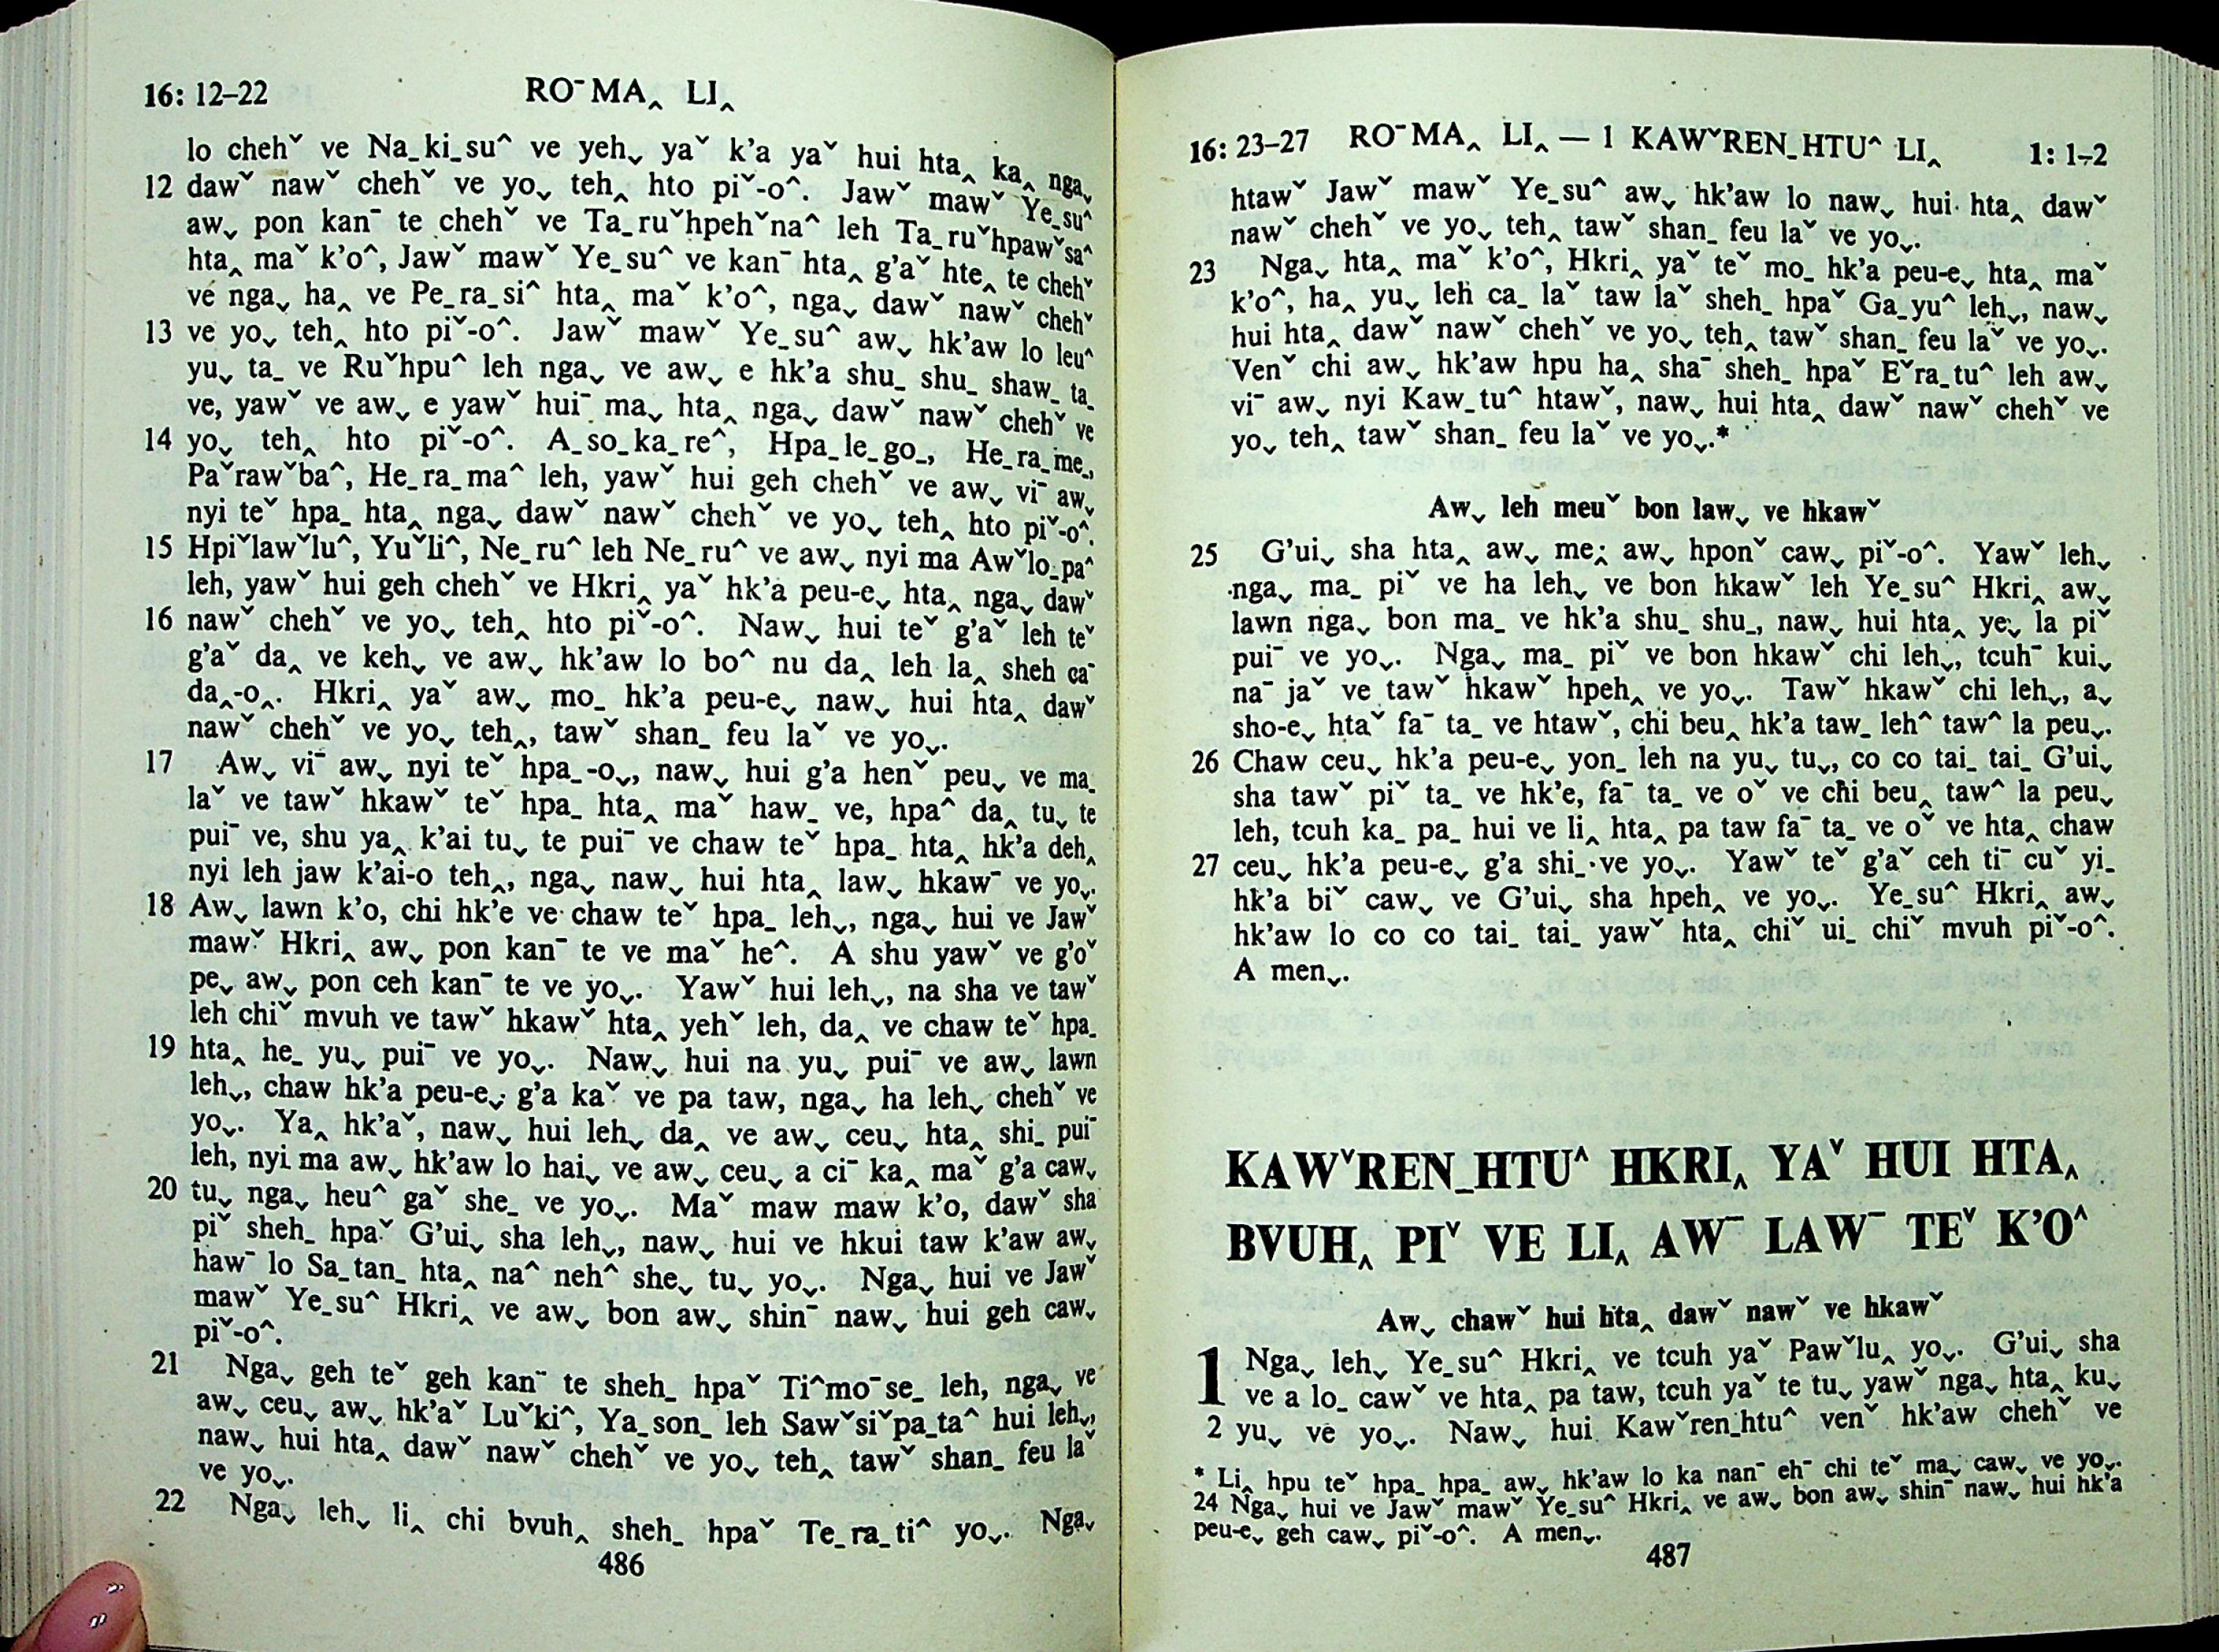 16: 12–22 RO¯MA‸ LI‸
lo chehˇ ve Na_ki_su^ ve yeh⌄ yaˇ k’a yaˇ hui hta‸ ka‸ nga⌄
12 dawˇ nawˇ chehˇ ve yo⌄ teh‸ hto piˇ-o^. Jawˇ mawˇ Ye_su^
aw⌄ pon kan¯ te chehˇ ve Ta_ruˇhpehˇna^ leh Ta_ruˇhpawˇsa^
hta‸ maˇ k’o^, Jawˇ mawˇ Ye_su^ ve kan¯ hta‸ g’aˇ hte‸ te chehˇ
ve nga⌄ ha‸ ve Pe_ra_si^ hta‸ maˇ k’o^, nga⌄ dawˇ nawˇ chehˇ
13 ve yo⌄ teh‸ hto piˇ-o^. Jawˇ mawˇ Ye_su^ aw⌄ hk’aw lo leu^
yu⌄ ta_ ve Ruˇhpu^ leh nga⌄ ve aw⌄ e hk’a shu_ shu_ shaw_ ta_
ve, yawˇ ve aw⌄ e yawˇ hui¯ ma⌄ hta‸ nga⌄ dawˇ nawˇ chehˇ ve
14 yo⌄ teh‸ hto piˇ-o^. A_so_ka_re^, Hpa_le_go_, He_ra_me_,
Paˇrawˇba^, He_ra_ma^ leh, yawˇ hui geh chehˇ ve aw⌄ vi¯ aw⌄
nyi teˇ hpa_ hta‸ nga⌄ dawˇ nawˇ chehˇ ve yo⌄ teh‸ hto piˇ-o^.
15 Hpiˇlawˇlu^, Yuˇli^, Ne_ru^ leh Ne_ru^ ve aw⌄ nyi ma Awˇlo_pa^
leh, yawˇ hui geh chehˇ ve Hkri‸ yaˇ hk’a peu-e⌄ hta‸ nga⌄ dawˇ
16 nawˇ chehˇ ve yo⌄ teh‸ hto piˇ-o^. Naw⌄ hui teˇ g’aˇ leh teˇ
g’aˇ da‸ ve keh⌄ ve aw⌄ hk’aw lo bo^ nu da‸ leh la‸ sheh ca¯
da‸-o‸. Hkri‸ yaˇ aw⌄ mo_ hk’a peu-e⌄ naw⌄ hui hta‸ dawˇ
nawˇ chehˇ ve yo⌄ teh‸, tawˇ shan_ feu laˇ ve yo⌄.
17 Aw⌄ vi¯ aw⌄ nyi teˇ hpa_-o⌄, naw⌄ hui g’a henˇ peu⌄ ve ma_
laˇ ve tawˇ hkawˇ teˇ hpa_ hta‸ maˇ haw_ ve, hpa^ da‸ tu⌄ te
pui¯ ve, shu ya‸ k’ai tu⌄ te pui¯ ve chaw teˇ hpa_ hta‸ hk’a deh‸
nyi leh jaw k’ai-o teh‸, nga⌄ naw⌄ hui hta‸ law⌄ hkaw¯ ve yo⌄.
18 Aw⌄ lawn k’o, chi hk’e ve chaw teˇ hpa_ leh⌄, nga⌄ hui ve Jawˇ
mawˇ Hkri‸ aw⌄ pon kan¯ te ve maˇ he^. A shu yawˇ ve g’oˇ
pe⌄ aw⌄ pon ceh kan¯ te ve yo⌄. Yawˇ hui leh⌄, na sha ve tawˇ
leh chiˇ mvuh ve tawˇ hkawˇ hta‸ yehˇ leh, da‸ ve chaw teˇ hpa_
19 hta‸ he_ yu⌄ pui¯ ve yo⌄. Naw⌄ hui na yu⌄ pui¯ ve aw⌄ lawn
leh⌄, chaw hk’a peu-e⌄ g’a kaˇ ve pa taw, nga⌄ ha leh⌄ chehˇ ve
yo⌄. Ya‸ hk’aˇ, naw⌄ hui leh⌄ da‸ ve aw⌄ ceu⌄ hta‸ shi_ pui¯
leh, nyi ma aw⌄ hk’aw lo hai⌄ ve aw⌄ ceu⌄ a ci¯ ka‸ maˇ g’a caw⌄
20 tu⌄ nga⌄ heu^ gaˇ she_ ve yo⌄. Maˇ maw maw k’o, dawˇ sha
piˇ sheh_ hpaˇ G’ui⌄ sha leh⌄, naw⌄ hui ve hkui taw k’aw aw⌄
haw¯ lo Sa_tan_ hta‸ na^ neh^ she⌄ tu⌄ yo⌄. Nga⌄ hui ve Jawˇ
mawˇ Ye_su^ Hkri‸ ve aw⌄ bon aw⌄ shin¯ naw⌄ hui geh caw⌄
piˇ-o^.
21 Nga⌄ geh teˇ geh kan¯ te sheh_ hpaˇ Ti^mo¯se_ leh, nga⌄ ve
aw⌄ ceu⌄ aw⌄ hk’aˇ Luˇki^, Ya_son_ leh Sawˇsiˇpa_ta^ hui leh⌄,
naw⌄ hui hta‸ dawˇ nawˇ chehˇ ve yo⌄ teh‸ tawˇ shan_ feu laˇ
ve yo⌄.
22 Nga⌄ leh⌄ li‸ chi bvuh‸ sheh_ hpaˇ Te_ra_ti^ yo⌄. Nga⌄
486
16: 23–27 RO¯MA‸ LI‸ — 1 KAWˇREN_HTU^ LI‸ 1: 1–2
htawˇ Jawˇ mawˇ Ye_su^ aw⌄ hk’aw lo naw⌄ hui hta‸ dawˇ
nawˇ chehˇ ve yo⌄ teh‸ tawˇ shan_ feu laˇ ve yo⌄.
23 Nga⌄ hta‸ maˇ k’o^, Hkri‸ yaˇ teˇ mo_ hk’a peu-e⌄ hta‸ maˇ
k’o^, ha‸ yu⌄ leh ca_ laˇ taw laˇ sheh_ hpaˇ Ga_yu^ leh⌄, naw⌄
hui hta‸ dawˇ nawˇ chehˇ ve yo⌄ teh‸ tawˇ shan_ feu laˇ ve yo⌄.
Venˇ chi aw⌄ hk’aw hpu ha‸ sha¯ sheh_ hpaˇ Eˇra_tu^ leh aw⌄
vi¯ aw⌄ nyi Kaw_tu^ htawˇ, naw⌄ hui hta‸ dawˇ nawˇ chehˇ ve
yo⌄ teh‸ tawˇ shan_ feu laˇ ve yo⌄.*
Aw⌄ leh meuˇ bon law⌄ ve hkawˇ
25 G’ui⌄ sha hta‸ aw⌄ me‸ aw⌄ hponˇ caw⌄ piˇ-o^. Yawˇ leh⌄
nga⌄ ma_ piˇ ve ha leh⌄ ve bon hkawˇ leh Ye_su^ Hkri‸ aw⌄
lawn nga⌄ bon ma_ ve hk’a shu_ shu_, naw⌄ hui hta‸ ye⌄ la piˇ
pui¯ ve yo⌄. Nga⌄ ma_ piˇ ve bon hkawˇ chi leh⌄, tcuh¯ kui⌄
na¯ jaˇ ve tawˇ hkawˇ hpeh‸ ve yo⌄. Tawˇ hkawˇ chi leh⌄, a⌄
sho-e⌄ htaˇ fa¯ ta_ ve htawˇ, chi beu‸ hk’a taw_ leh^ taw^ la peu⌄.
26 Chaw ceu⌄ hk’a peu-e⌄ yon_ leh na yu⌄ tu⌄, co co tai_ tai_ G’ui⌄
sha tawˇ piˇ ta_ ve hk’e, fa¯ ta_ ve oˇ ve chi beu‸ taw^ la peu⌄
leh, tcuh ka_ pa_ hui ve li‸ hta‸ pa taw fa¯ ta_ ve oˇ ve hta‸ chaw
27 ceu⌄ hk’a peu-e⌄ g’a shi_ ve yo⌄. Yawˇ teˇ g’aˇ ceh ti¯ cuˇ yi_
hk’a biˇ caw⌄ ve G’ui⌄ sha hpeh‸ ve yo⌄. Ye_su^ Hkri‸ aw⌄
hk’aw lo co co tai_ tai_ yawˇ hta‸ chiˇ ui_ chiˇ mvuh piˇ-o^.
A men⌄.
KAWˇREN_HTU^ HKRI‸ YAˇ HUI HTA‸
BVUH‸ PIˇ VE LI‸ AW¯ LAW¯ TEˇ K’O^
Aw⌄ chawˇ hui hta‸ dawˇ nawˇ ve hkawˇ
1 Nga⌄ leh⌄ Ye_su^ Hkri‸ ve tcuh yaˇ Pawˇlu‸ yo⌄. G’ui⌄ sha
ve a lo_ cawˇ ve hta‸ pa taw, tcuh yaˇ te tu⌄ yawˇ nga⌄ hta‸ ku⌄
2 yu⌄ ve yo⌄. Naw⌄ hui Kawˇren_htu^ venˇ hk’aw chehˇ ve
* Li‸ hpu teˇ hpa_ hpa_ aw⌄ hk’aw lo ka nan¯ eh¯ chi teˇ ma⌄ caw⌄ ve yo⌄.
24 Nga⌄ hui ve Jawˇ mawˇ Ye_su^ Hkri‸ ve aw⌄ bon aw⌄ shin¯ naw⌄ hui hk’a
peu-e⌄ geh caw⌄ piˇ-o^. A men⌄.
487